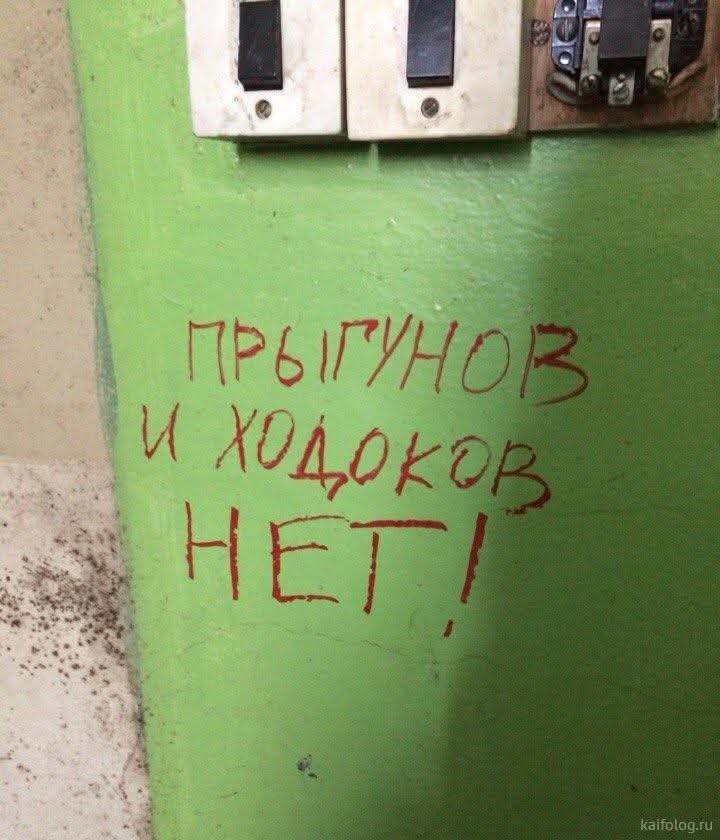 ПРЫГУНОВ
И ХОДОКОВ
НЕТ!
kaifolog.ru